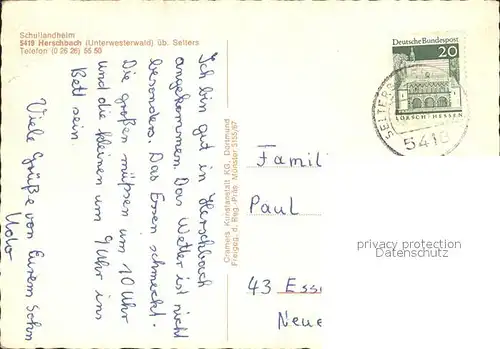 Schullandheim
5419 Herschbach (Unterwesterwald) üb. Selters
Telefon (0 26 26) 55 50
Ich bin gut in Herschbach
angekommen. Das Wetter ist nicht
besonders. Das Essen schmeckt.
Die großen müssen um 10 Uhr
und die kleinen um 9 Uhr ins
Bett sein.
Viele Grüße von Eurem Sohn
Udo
Cramers Kunstanstalt KG, Dortmund
Freigeg. d. Reg.-Präs. Münster 5155/67
Deutsche Bundespost
20
LORSCH / HESSEN
SELTERS
5418
Famil
Paul
43 Ess
Neue
privacy protection
Datenschutz